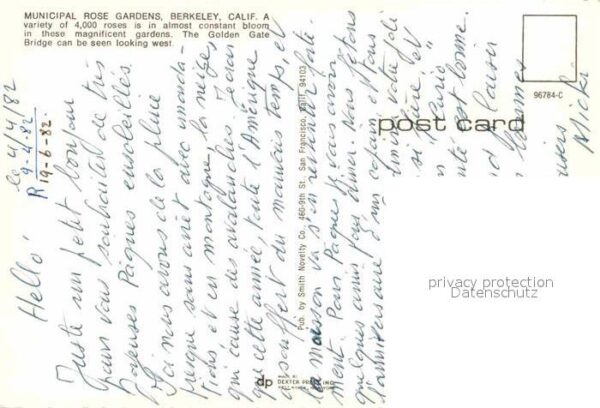 MUNICIPAL ROSE GARDENS, BERKELEY, CALIF. A
variety of 4,000 roses is in almost constant bloom
in these magnificent gardens. The Golden Gate
Bridge can be seen looking west.
96784-C
post card
Pub. by Smith Novelty Co., 460-9th St., San Francisco, Calif. 94103
dp
DEXTER PRESS, INC.
privacy protection
Datenschutz
le 4/4/82
9-4-82
R 19-6-82
Hello!
Juste un petit bonjour
pour vous souhaiter de très
joyeuses Pâques ensoleillées.
Ici nous avons de la pluie
presque sans arrêt avec inonda-
tions et en montagne la neige,
qui cause des avalanches. Je crois
que cette année, toute l'Amérique
a souffert du mauvais temps, et
la maison va s'en ressentir
ment. Pour Pâques je vais avoir
quelques amis pour dîner. Nous fêtons
l'anniversaire d'un
votre
est bonne.
Nicki